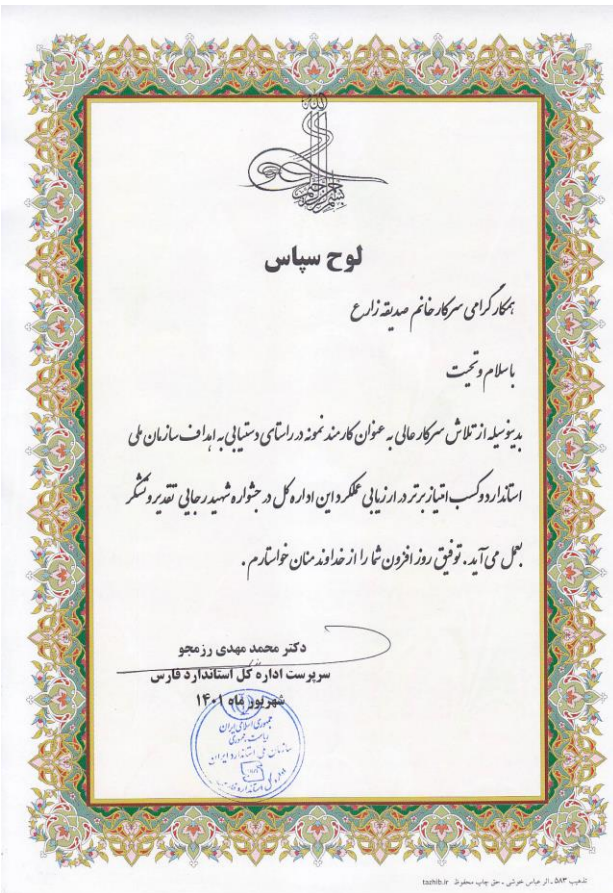 بسم الله الرحمن الرحیم
لوح سپاس
همکار گرامی سرکار خانم صدیقه زارع
با سلام و تحیت
بدینوسیله از تلاش سرکار عالی به عنوان کارمند نمونه در راستای دستیابی به اهداف سازمان ملی
استاندارد و کسب امتیاز برتر در ارزیابی عملکرد این اداره کل در جشنواره شهید رجایی تقدیر و تشکر
بعمل می آید. توفیق روز افزون شما را از خداوند منان خواستارم.
دکتر محمد مهدی رزمجو
سرپرست اداره کل استاندارد فارس
شهریور ماه ۱۴۰۱
جمهوری اسلامی ایران
ریاست جمهوری
سازمان ملی استاندارد ایران
تذهیب ۵۸۳ ـ اثر عباس خوشی ـ حق چاپ محفوظ tazhib.ir